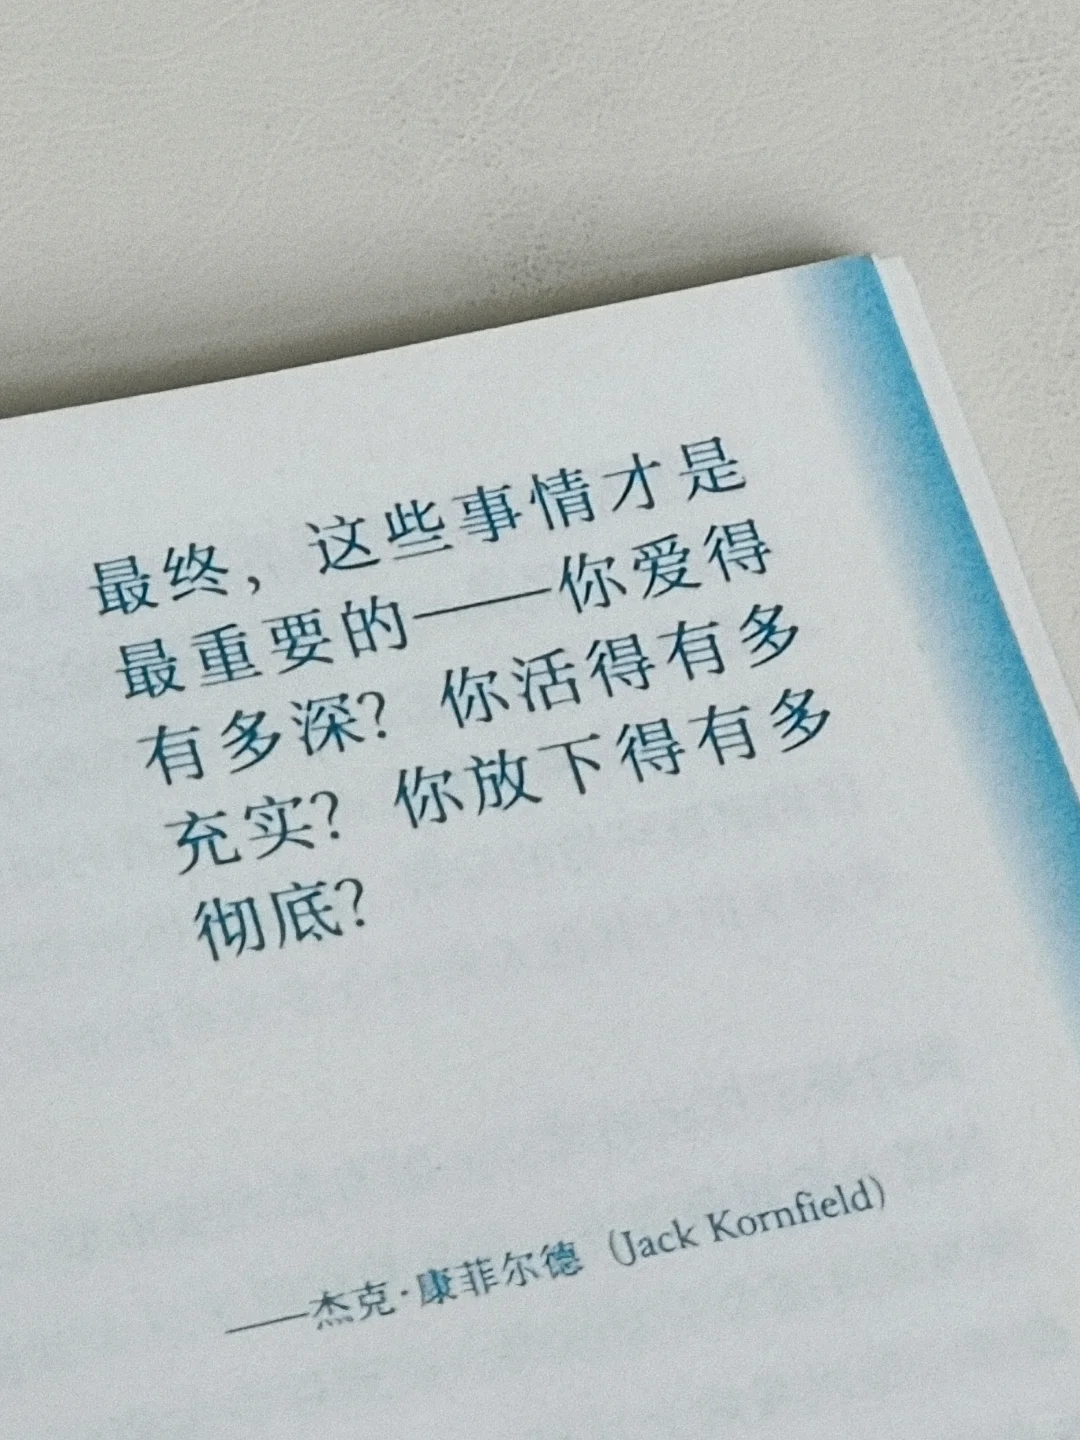 最终，这些事情才是
最重要的——你爱得
有多深？你活得有多
充实？你放下得有多
彻底？
——杰克·康菲尔德（Jack Kornfield）